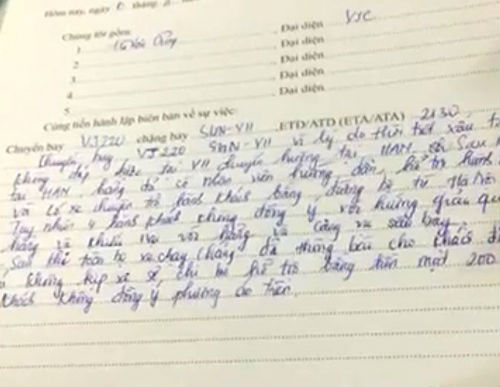 Hôm nay, ngày 6 tháng
Chúng tôi gồm:
1. , Đại diện VSC
2. , Đại diện
3. , Đại diện
4. , Đại diện
5. , Đại diện
Cùng tiến hành lập biên bản về sự việc:
Chuyến bay VJ220 chặng bay SGN-VII .ETD/ATD (ETA/ATA) 2130
Chuyến bay VJ220 SGN-VII vì lý do thời tiết xấu
không đáp được tại VII chuyển hướng tại HAN, Sau
tại HAN hãng đã có nhân viên hướng dẫn, hỗ trợ hành
và có xe chuyên trở hành khách bằng đường bộ từ Hà Nội
Tuy nhiên 4 hành khách không đồng ý với hướng giải quyết
hãng và khiếu nại với hãng và cảng vụ sân bay.
Sau khi toàn bộ xe chạy hãng đã thông báo cho khách
không kịp xe sẽ chỉ hỗ trợ bằng tiền mặt 200
khách không đồng ý phương án trên.